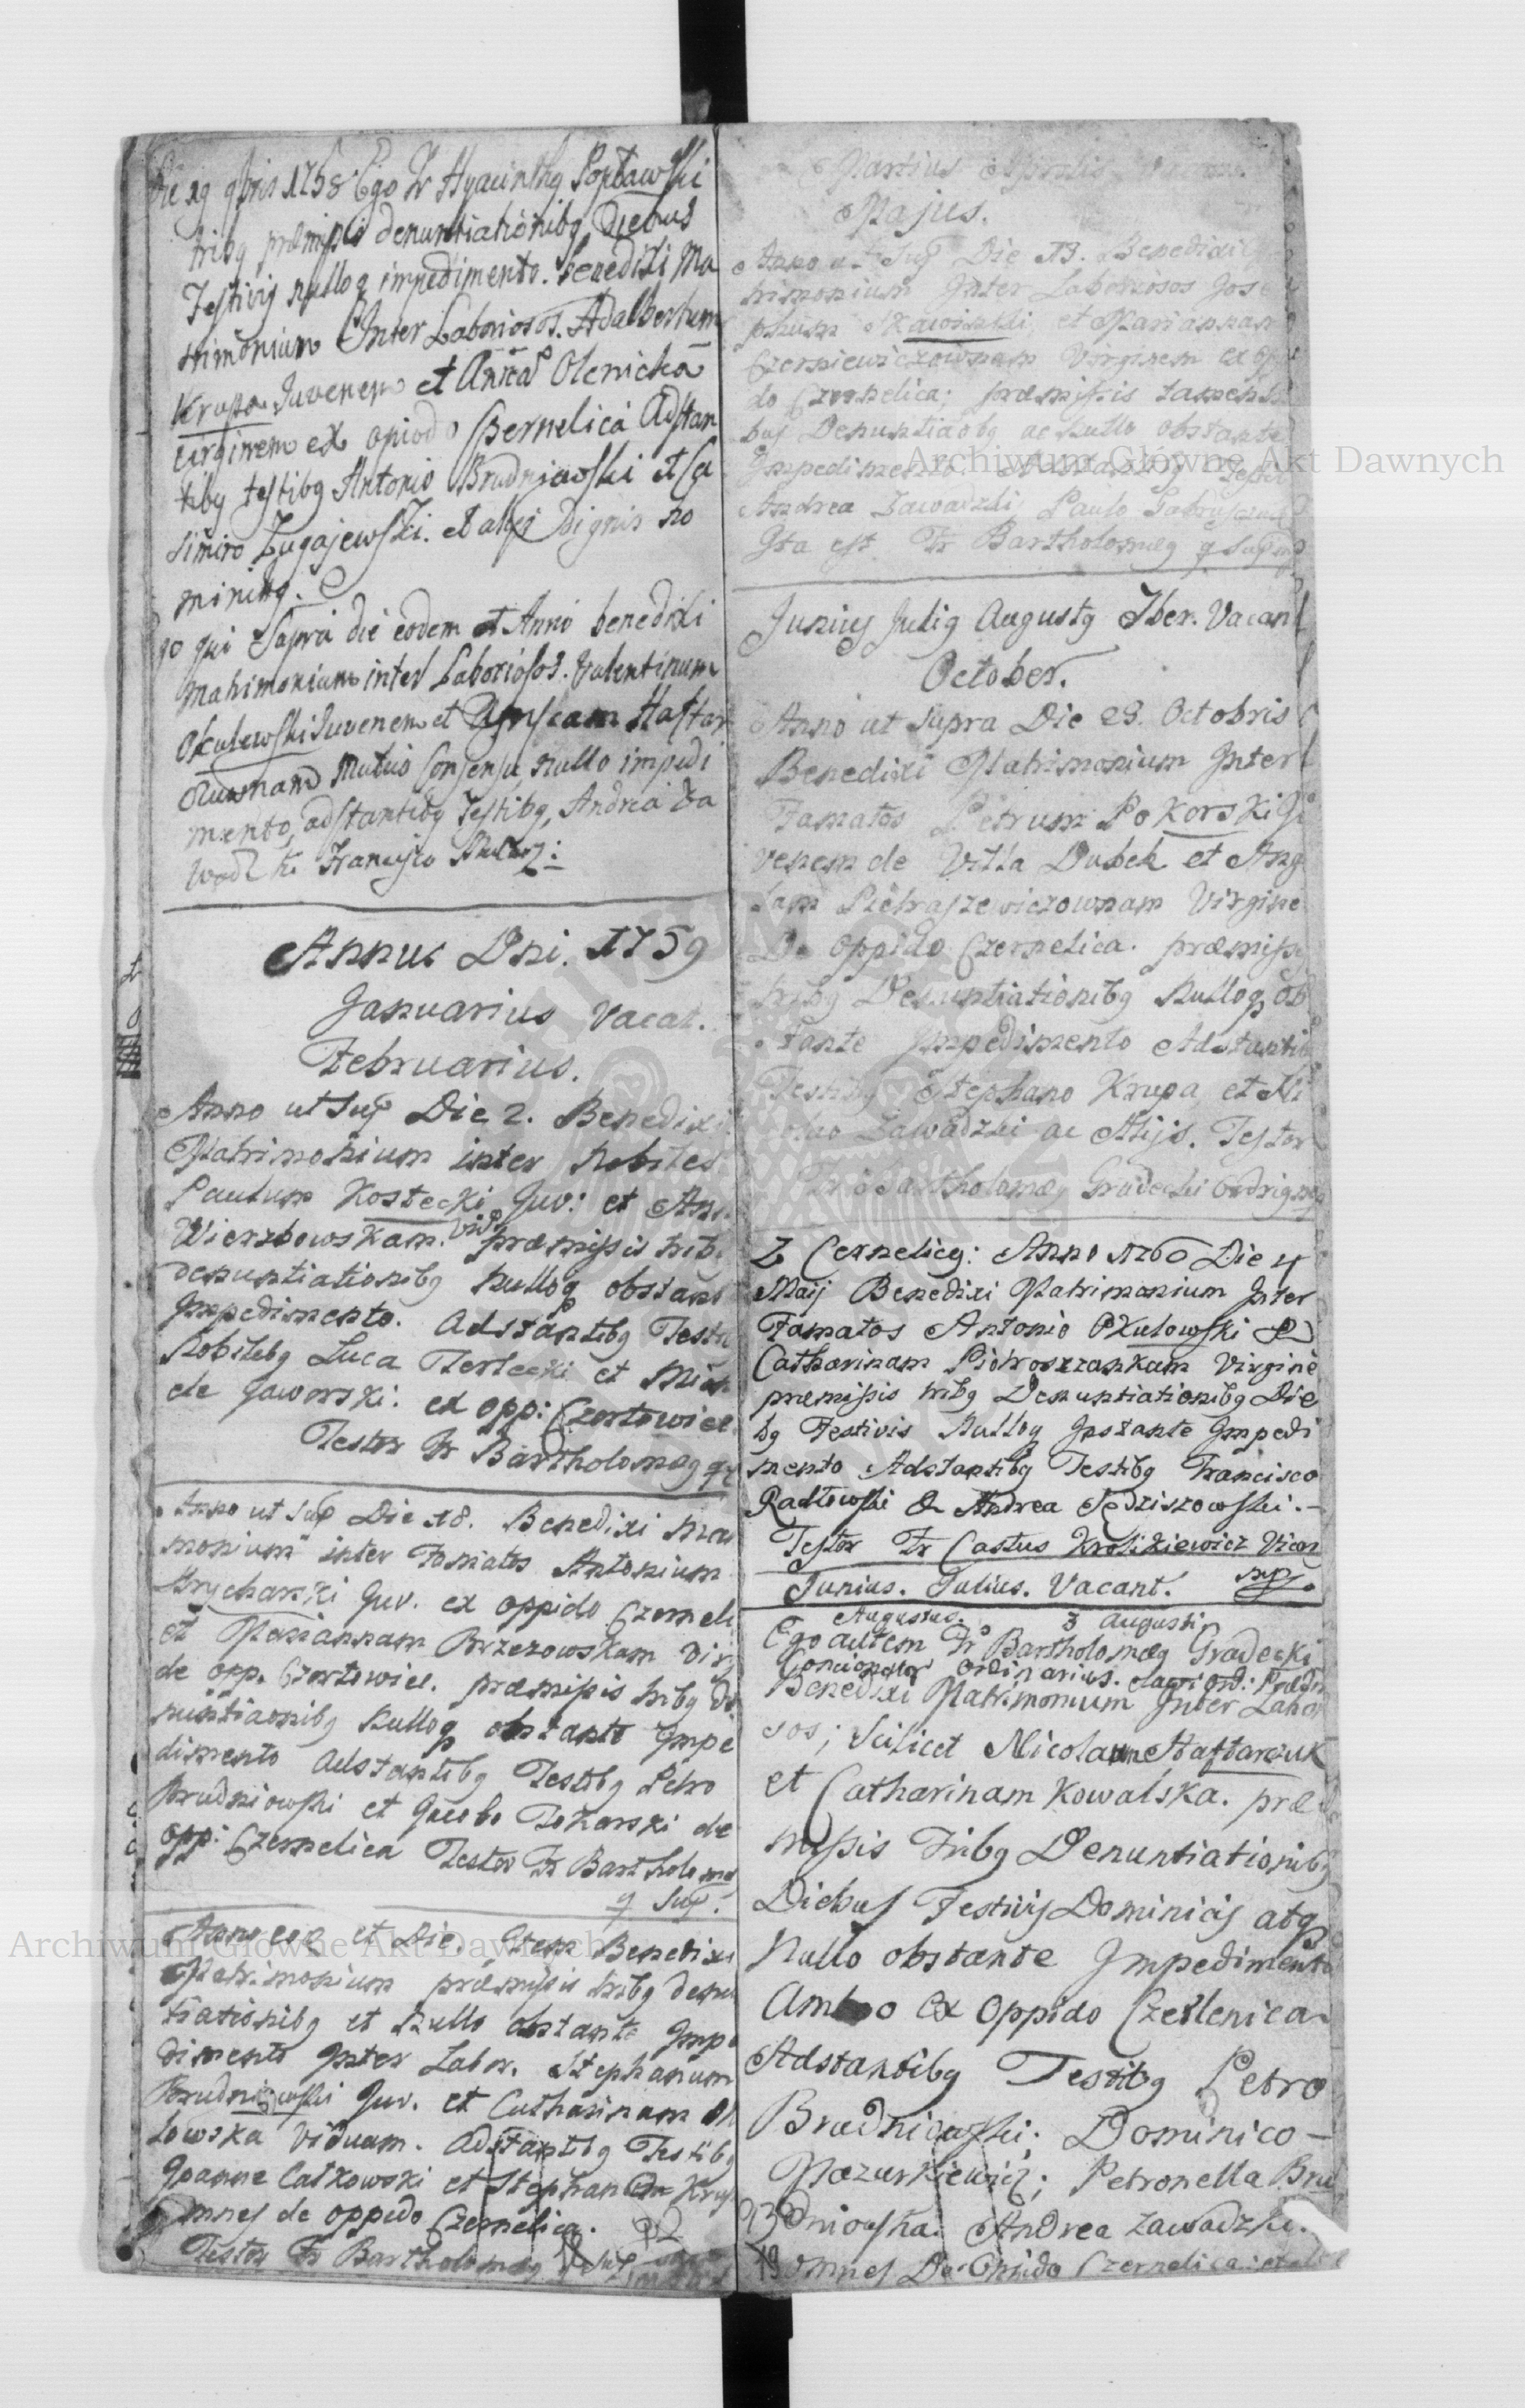 Die 19 9bris 1758 Ego Fr Hyacinthq Popławski
tribq præmissis denuntiationibq Diebus
Festivis nulloq impedimento. benedixi Ma
trimonium Inter Laboriosos. Adalbertum
Krupa Juvenem et Annã Olenicka
virginem ex opiodo Czernelica Adstan
tibq testibq Antonio Brudniowski et Ca
simiro Zugajewski. et alijs Dignis no
minibq.
Ego qui Supra die eodem et Anno benedixi
Matrimonium inter Laboriosos. Valentinum
Okulewski Juvenem et Agnseam Haftar
czuwnam Mutuo Consensu nullo impedi
mento, adstantibq Testibq, Andrea Za
wadzki Francisco
Annus Dni. 1759
Januarius Vacat.
Februarius.
Anno ut Sup Die 2. Benedixi
Matrimonium inter Nobiles
Paulum Kostecki Juv: et Ann
Wierzbowskam. vid præmissis trib
denuntiationibq Nulloq obstant
Impedimento. Adstantibq Testi
Nobilibq Luca Terlecki et Mich
ele Jaworski. ex opp: Czortowiec
Testor Fr Bartholomæq qs
Anno ut Sup Die 18. Benedixi Mat
monium inter Famatos Antonium
Strycharski Juv. ex oppido Czerneli
et Mariannam Brzezowskam Virg
de opp. Czortowiec. præmissis tribq De
nuntiaonibq Nulloq obstante Impe
dimento Adstantibq Testibq Petro
Brudniowski et Jacobo Tokarski de
opp: Czernelica Testor Fr Bartholomæ
q Sup.
Anno eoq et Die. Item Benedixi
Matrimonium præmissis tribq denu
tiationibq et Nullo obstante Impe
dimento Inter Labor. Stephanum
Brudniowski Juv. et Catharinam
lowska Viduam. Adstantibq Testibq
Joanne Całkowski et Stephano Krup
omnes de oppido Czernelica.
Testor Fr Bartholomæq q Sup
Martius Aprilis Vacant.
Majus.
Anno ut Sup Die 13. Benedixi
trimonium Inter Laboriosos Jose
phum Skawinski et Mariannam
Czerniewiczownam Virginem ex op
do Czernelica; præmissis tamen
bus Denuntiaobq ac Nullo obstante
Impedimento. Adstantibq Testib
Andrea Zawadzki, Paulo
Ita est Fr Bartholomæq q Sup mp
Junius Juliq Augustq 7ber. Vacant
October.
Anno ut Supra Die 29. Octobris
Benedixi Matrimonium Inter
Famatos Petrum Pokorski Ju
venem de Villa Dubek et Ang
lam Pietraszewiczownam Virgine
De oppido Czernelica. præmissis
tribq Denuntiationibq Nulloq ob
stante Impedimento Adstantib
Testibq Stephano Krupa, et Ni
olao Zawadzki ac Alijs. Testor
Fr Bartholomæq Gradecki Ordrig mp
Z Cernelicy: Anno 1760 Die 4
Maij Benedixi Matrimonium Inter
Famatos Antonio Okulowski &
Catharinam Piotroszzankam Virginẽ
præmissis tribq Denuntiationibq Die
bq Festivis Nulloq Instante Impedi
mento Adstantibq Testibq Francisco
Radłowski & Andrea Sędziszowski.-
Testor Fr Castus Krolikiewicz Vican
mp
Junius. Julius. Vacant.
Augustus. 3 Augusti
Ego autem Fr Bartholomæq Gradecki
Concionator Ordinarius. sacri Ord: Prædic
Benedixi Matrimonium Inter Labor
sos; Scilicet Nicolaum Haftarczuk
et Catharinam Kowalska. præ
missis Tribq Denuntiationibq
Diebus Festivis Dominicis atq
Nullo obstante Impedimento
Ambo Ex Oppido Czerlenica.
Adstantibq Testibq Petro
Brudniowski; Dominico -
Mazurkiewicz; Petronella Bru
dniowska. Andrea Zawadzki.
omnes De Opido Czernelica: et
Archiwum Główne Akt Dawnych
Archiwum Główne Akt Dawnych